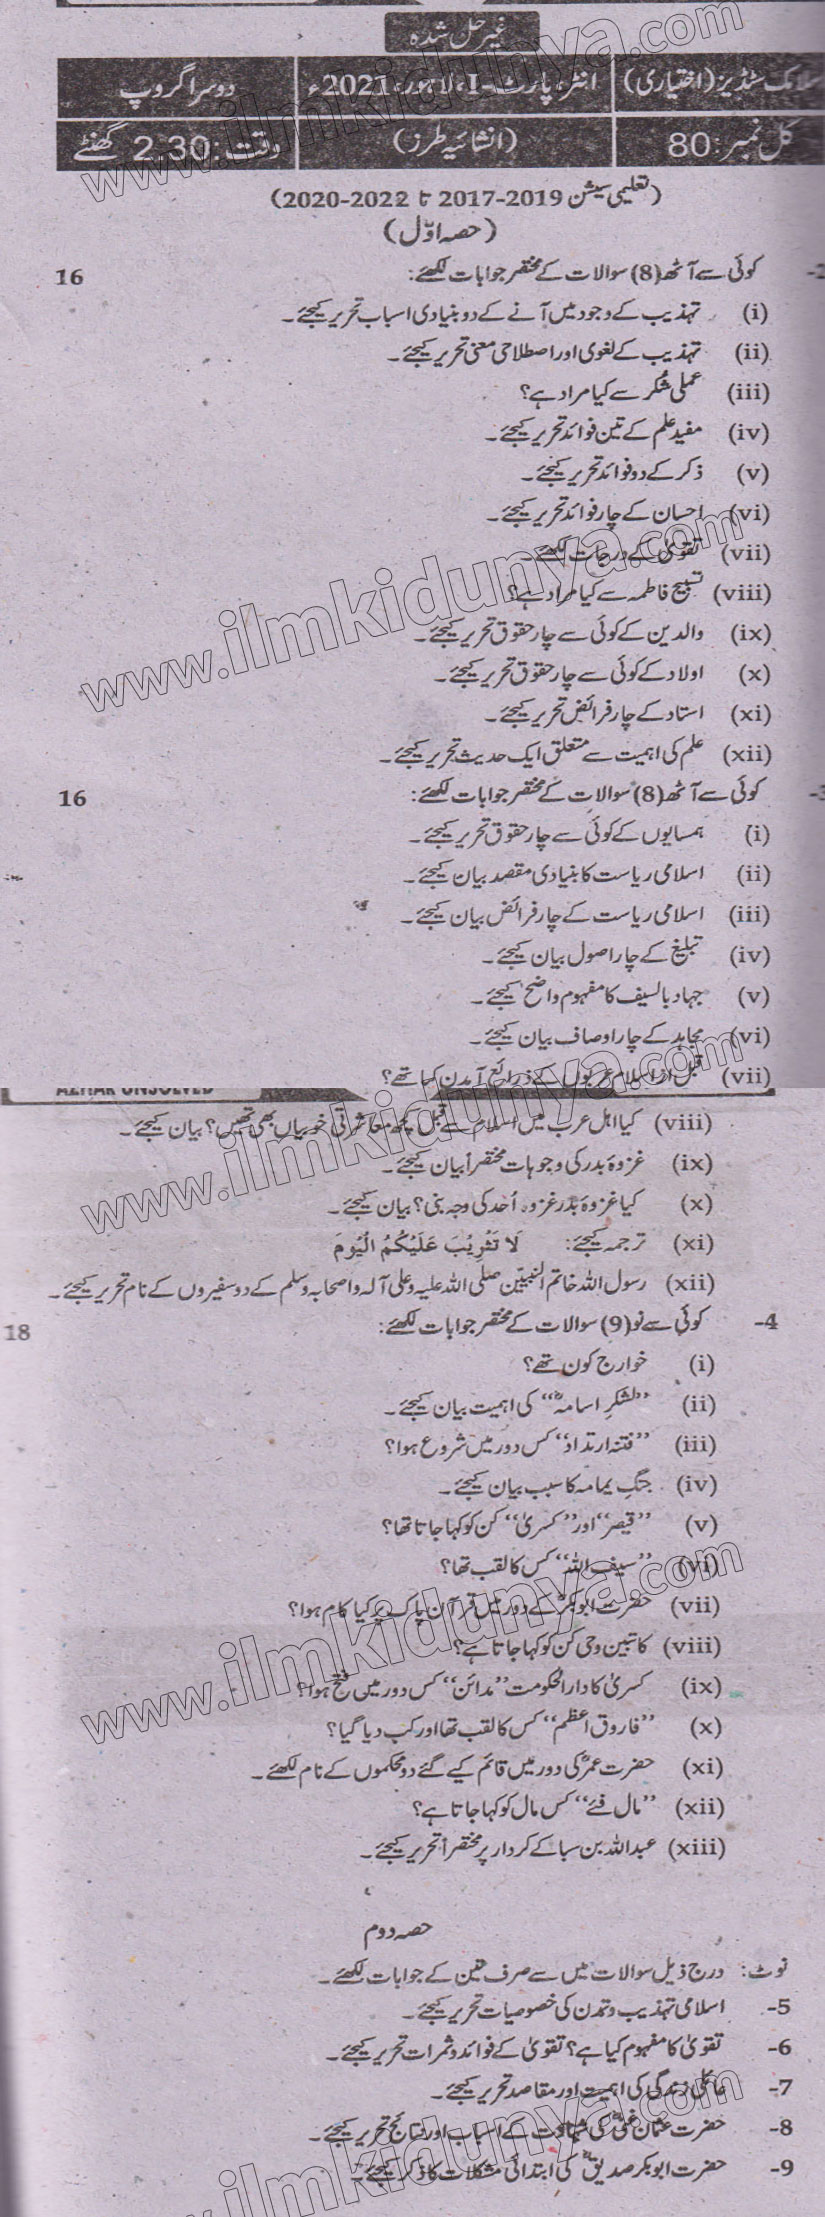 غیر حل شدہ
اسلامک سٹڈیز (اختیاری) انٹر پارٹ-I، لاہور، 2021ء دوسرا گروپ
کل نمبر: 80 (انشائیہ طرز) وقت: 2.30 گھنٹے
(تعلیمی سیشن 2019-2017 تا 2022-2020)
(حصہ اوّل)
2- کوئی سے آٹھ (8) سوالات کے مختصر جوابات لکھئے: 16
(i) تہذیب کے وجود میں آنے کے دو بنیادی اسباب تحریر کیجئے۔
(ii) تہذیب کے لغوی اور اصطلاحی معنی تحریر کیجئے۔
(iii) عملی شُکر سے کیا مراد ہے؟
(iv) مفید علم کے تین فوائد تحریر کیجئے۔
(v) ذکر کے دو فوائد تحریر کیجئے۔
(vi) احسان کے چار فوائد تحریر کیجئے۔
(vii) تقویٰ کے درجات لکھئے۔
(viii) تسبیح فاطمہ سے کیا مراد ہے؟
(ix) والدین کے کوئی سے چار حقوق تحریر کیجئے۔
(x) اولاد کے کوئی سے چار حقوق تحریر کیجئے۔
(xi) استاد کے چار فرائض تحریر کیجئے۔
(xii) علم کی اہمیت سے متعلق ایک حدیث تحریر کیجئے۔
3- کوئی سے آٹھ (8) سوالات کے مختصر جوابات لکھئے: 16
(i) ہمسایوں کے کوئی سے چار حقوق تحریر کیجئے۔
(ii) اسلامی ریاست کا بنیادی مقصد بیان کیجئے۔
(iii) اسلامی ریاست کے چار فرائض بیان کیجئے۔
(iv) تبلیغ کے چار اصول بیان کیجئے۔
(v) جہاد بالسیف کا مفہوم واضح کیجئے۔
(vi) مجاہد کے چار اوصاف بیان کیجئے۔
(vii) قبل از اسلام عربوں کے ذرائع آمدن کیا تھے؟
AZHAR UNSOLVED
(viii) کیا اہل عرب میں اسلام سے قبل کچھ معاشرتی خوبیاں بھی تھیں؟ بیان کیجئے۔
(ix) غزوہ بدر کی وجوہات مختصراً بیان کیجئے۔
(x) کیا غزوہ بدر غزوہ اُحد کی وجہ بنی؟ بیان کیجئے۔
(xi) ترجمہ کیجئے: لَا تَثْرِيْبَ عَلَيْكُمُ الْيَوْمَ
(xii) رسول اللہ خاتم النبیّین صلی اللہ علیہ وعلی آلہ واصحابہ وسلم کے دو سفیروں کے نام تحریر کیجئے۔
4- کوئی سے نو (9) سوالات کے مختصر جوابات لکھئے: 18
(i) خوارج کون تھے؟
(ii) ”لشکرِ اسامہؓ“ کی اہمیت بیان کیجئے۔
(iii) ”فتنہ ارتداد“ کس دور میں شروع ہوا؟
(iv) جنگِ یمامہ کا سبب بیان کیجئے۔
(v) ”قیصر“ اور ”کسریٰ“ کن کو کہا جاتا تھا؟
(vi) ”سیف اللہ“ کس کا لقب تھا؟
(vii) حضرت ابوبکرؓ کے دور میں قرآن پاک پر کیا کام ہوا؟
(viii) کاتبین وحی کن کو کہا جاتا ہے؟
(ix) کسریٰ کا دارالحکومت ”مدائن“ کس دور میں فتح ہوا؟
(x) ”فاروق اعظم“ کس کا لقب تھا اور کب دیا گیا؟
(xi) حضرت عمرؓ کی دور میں قائم کیے گئے دو محکموں کے نام لکھئے۔
(xii) ”مال فئے“ کس مال کو کہا جاتا ہے؟
(xiii) عبداللہ بن سبا کے کردار پر مختصراً تحریر کیجئے۔
حصہ دوم
نوٹ: درج ذیل سوالات میں سے صرف تین کے جوابات لکھئے۔
5- اسلامی تہذیب و تمدن کی خصوصیات تحریر کیجئے۔
6- تقویٰ کا مفہوم کیا ہے؟ تقویٰ کے فوائد و ثمرات تحریر کیجئے۔
7- عائلی زندگی کی اہمیت اور مقاصد تحریر کیجئے۔
8- حضرت عثمان غنیؓ کی شہادت کے اسباب اور نتائج تحریر کیجئے۔
9- حضرت ابوبکر صدیقؓ کی ابتدائی مشکلات کا ذکر کیجئے۔
www.ilmkidunya.com
www.ilmkidunya.com
www.ilmkidunya.com
www.ilmkidunya.com
www.ilmkidunya.com